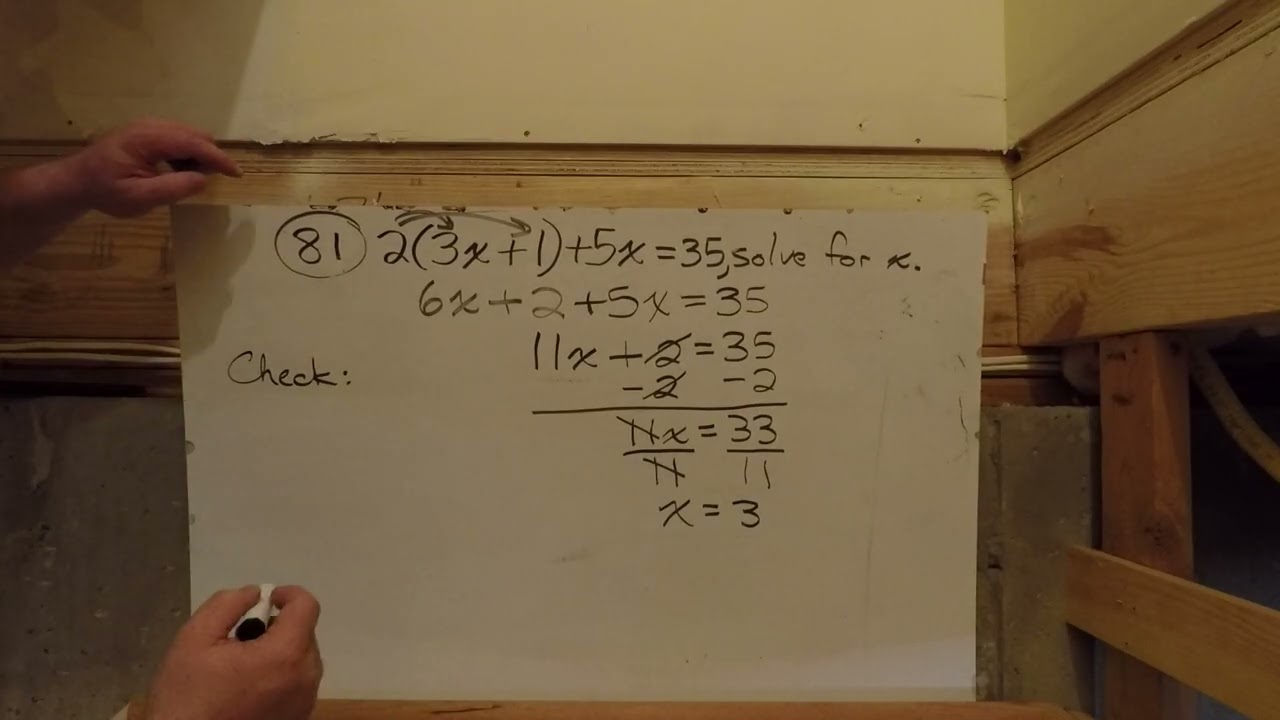 81 2(3x+1)+5x=35, solve for x.
6x+2+5x=35
11x+2=35
Check:
-2 -2
11x=33
11 11
x=3